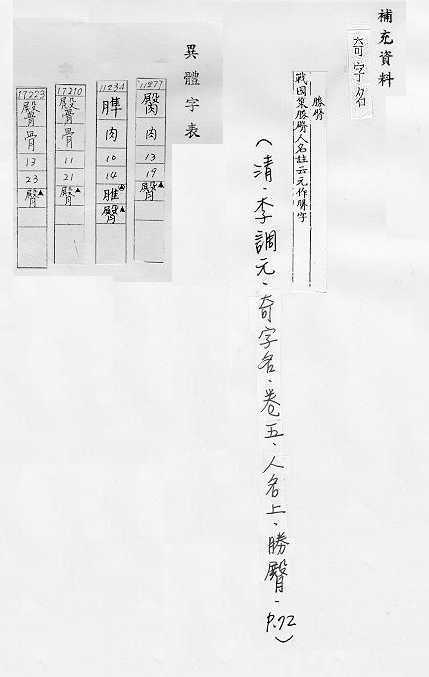 補充資料
奇字名
勝臀
戰國策勝臀人名註云元作勝字
(清．李調元．奇字名．卷五．人名上．勝臀．P.92)
異體字表
11277
肉
13
19
臀▲
11234
肉
10
14
臀▲
17210
骨
11
21
臀▲
17223
骨
13
23
臀▲